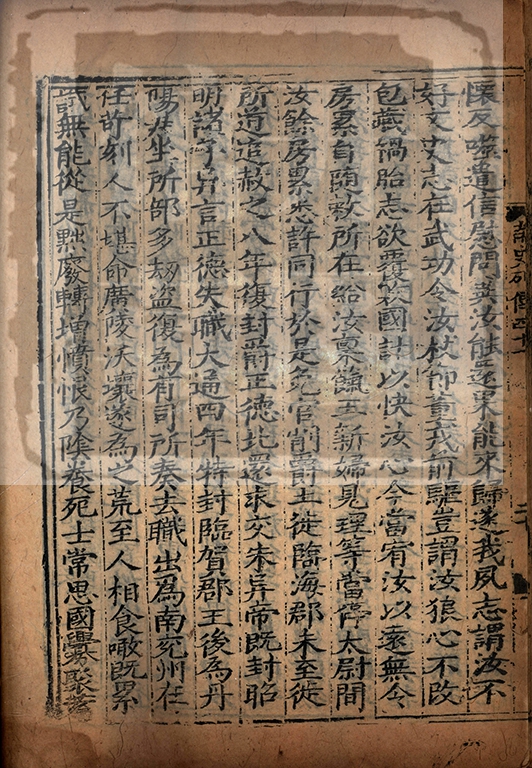 懷反噬遣信慰問冀汝能還果能來歸遂我夙志謂汝不
好文史志在武功令汝杖節董戎前驅豈謂汝狼心不改
包藏禍胎志欲覆敗國計以快汝心今當宥汝以遠無令
房累自隨敕所在給汝稟餼王新婦見理等當停太尉間
汝餘房累悉許同行於是免官削爵土徙臨海郡未至徙
所道追赦之八年復封爵正德北還求交朱异帝既封昭
明諸子异言正德失職大通四年特封臨賀郡王後為丹
陽尹坐所部多劫盜復為有司所奏去職出為南兗州在
任苛刻人不堪命廣陵沃壤遂為之荒至人相食噉既累
試無能從是黜廢轉增憤恨乃陰養死士常思國釁聚蓄